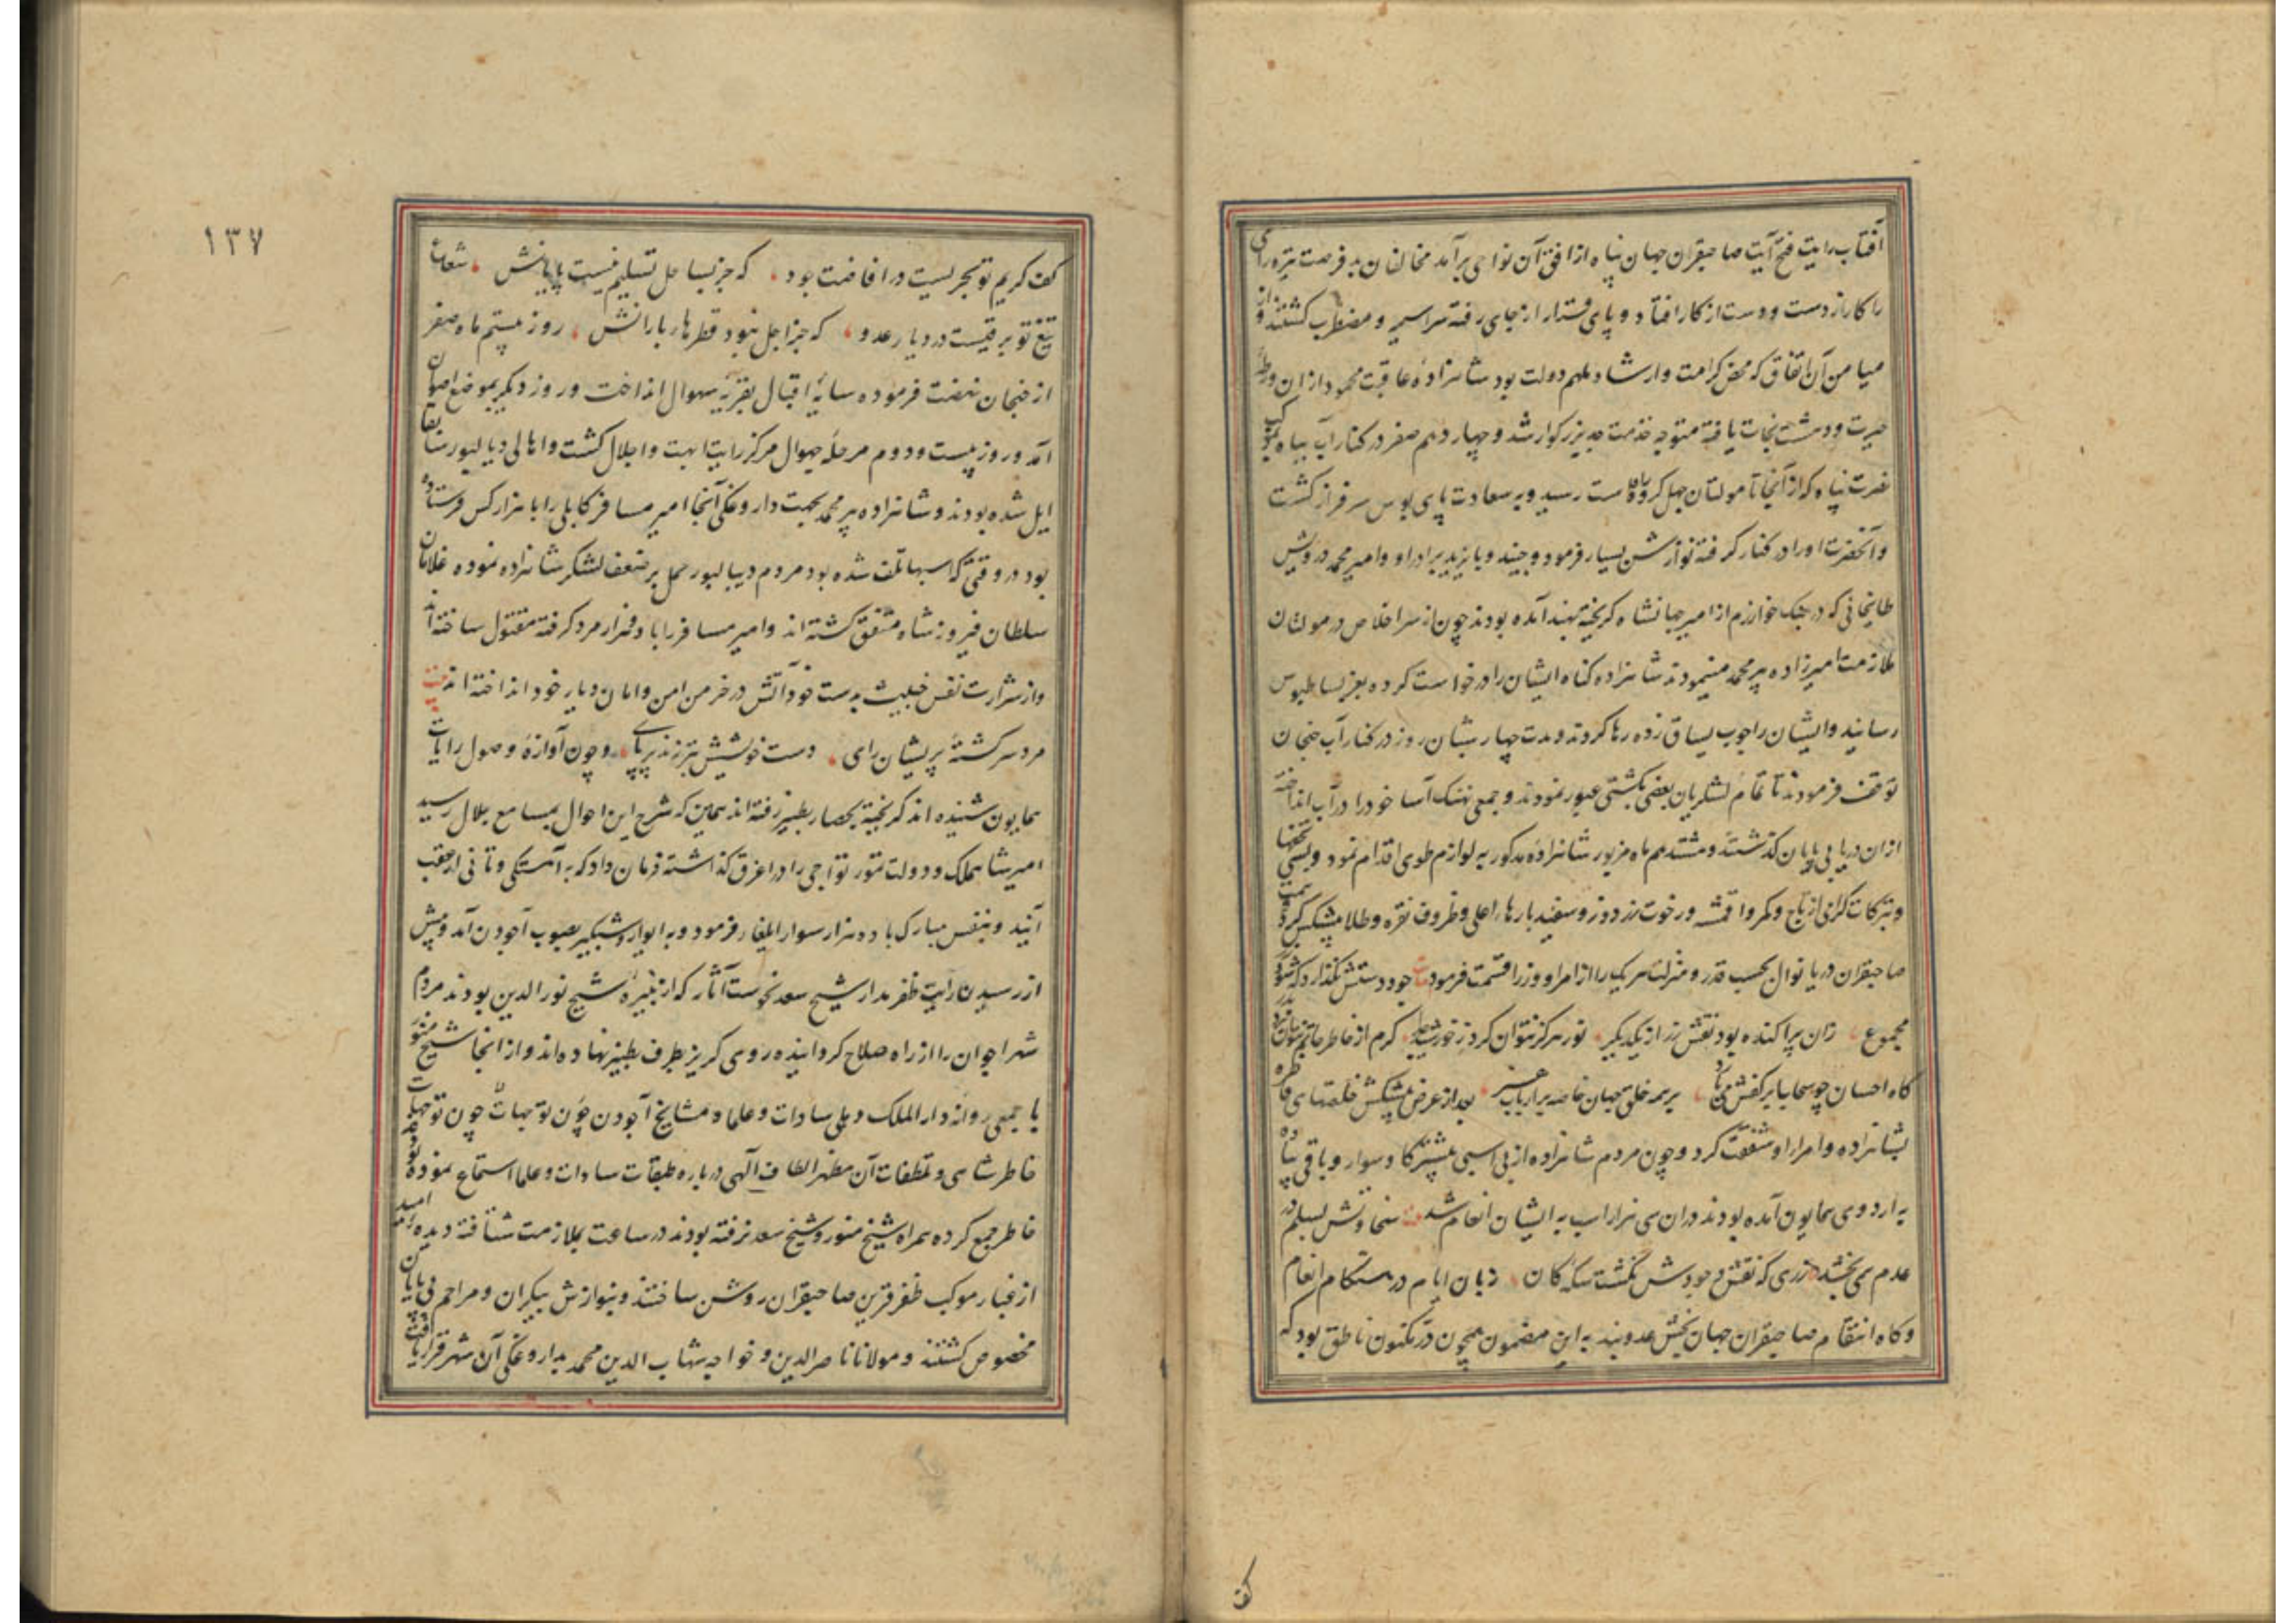 آفتاب رایت فتح آیت صاحبقران جهان پناه از افق آن نواحی برآمد مخالفان بد فرصت تیره رای
را کار از دست و دست از کار افتاد و پای قرار از جای رفته سراسیمه و مضطرب گشتند و از
میامن آن اتفاق که محض کرامت و ارشاد ملهم دولت بود شاهزاده عاقبت محمود از ان ورطه
حیرت و دهشت نجات یافته متوجه خدمت جد بزرگوار شد و چهاردهم صفر در کنار آب بیاه بموکب
نصرت پناه که از آنجا تا مولتان چهل کروه راه است رسید و به سعادت پای بوس سرفراز گشت
و آنحضرت او را در کنار گرفته نوازش بسیار فرمود و جنید و بایزید برادر او و امیر محمد درویش
طایخانی که در جنک خوارزم از امیر جهانشاه گریخته بهند آمده بودند چون از سر اخلاص در مولتان
ملازمت امیرزاده پیر محمد مینمودند شاهزاده گناه ایشان را درخواست کرده بعز بساط بوس
رسانید و ایشان را چوب یساق زده رها کردند و مدت چهار شبان روز در کنار آب خنجان
توقف فرمودند تا تمام لشکریان بعضی بکشتی عبور نمودند و جمعی نهنک آسا خود را در آب انداخته
از ان دریا بی پایان گذشتند و هشتدهم ماه مزبور شاهزاده مذکور به لوازم طوی اقدام نمود و بسی تحفها
و تبرکات گرانی از تاج و کمر و اقمشه و رخوت زر دوز و سفید بارها اعلی و ظروف نقره و طلا پیشکش کرد همت
صاحبقران دریا نوال بحسب قدر و منزلت هر یک را از امرا و وزرا قسمت فرمود بیت جود دستش نگذارد که شود
مجموع زان پراکنده بود نقش زر از یکدیگر نور هرگز نتوان کرد ز خورشید کرم از خاطر حاتم
گاه احسان چو سحابیا بر کفش بر همه خلق جهان خاصه بر ارباب هنر بعد از عرض پیشکش خلعتهای فاخره
بشاهزاده و امرا او شفقت کرد و چون مردم شاهزاده از بی اسبی بیشتر گاو سوار و باقی پیاده
به اردوی همایون آمده بودند در ان سی هزار اسب به ایشان انعام شد بیت سخاوتش بسبلم در
عدم می بخشد زری که نقش وجودش نگشت سکه کان زبان ایام در هنگام انعام
و گاه انتقام صاحبقران جهان بخش عدو بند به این مضمون همچون در مکنون ناطق بود که
کف
۱۳۷
کف کریم تو بحریست در افاضت بود که جز بساحل تسلیم نیست پایانش شعاع
تیغ تو برقیست در دیار عدو که جز اجل نبود قطرهای بارانش روز بیستم ماه صفر
از خنجان نهضت فرموده سایه اقبال بقریه سهوال انداخت و روز دیگر بموضع اصوان
آمد و روز بیست و دوم مرحله جهوال مرکز رایت ابهت و اجلال گشت و اهالی دیبالپور سابقا
ایل شده بودند و شاهزاده پیر محمد بجهت داروغگی آنجا امیر مسافر کابلی را با هزار کس فرستاده
بود در وقتی که اسبها تلف شده بود مردم دیبالپور حمل بر ضعف لشکر شاهزاده نموده غلامان
سلطان فیروز شاه متفق گشته اند و امیر مسافر را با دو هزار مرد گرفته مقتول ساخته اند
و از شرارت نفس خبیث بدست خود آتش در خرمن امن و امان دیار خود انداخته اند بیت
مرد سرگشته پریشان رای دست خویشش تبر زند بر پای و چون آوازه وصول رایات
همایون شنیده اند گریخته بحصار بطنیر رفته اند همین که شرح این احوال بمسامع جلال رسید
امیر شاهملک و دولت تمور تواجی را در اغرق گذاشته فرمان داد که به آهستگی و تانی از عقب
آیند و بنفس مبارک با ده هزار سوار ایلغار فرمود و به ایوار و شبگیر بصوب آجودن آمد و پیش
از رسیدن رایت ظفر مدار شیخ سعد نحوست آثار که از نبیره شیخ نورالدین بودند مردم
شهر اجوان را از راه صلاح گردانیده روی گریز بطرف بطنیر نهاده اند و از انجا شیخ منور
با جمعی روانه دار الملک دهلی سادات و علما و مشایخ آجودن چون توجهات چون توجهات
خاطر شاهی و تعطفات آن مظهر الطاف آلهی درباره طبقات سادات و علما استماع نموده بودند
خاطر جمع کرده همراه شیخ منور و شیخ سعد نرفته بودند در ساعت بملازمت شتافته دیده امید
از غبار موکب ظفر قرین صاحبقران روشن ساختند و بنوازش بیکران و مراحم بی پایان
مخصوص گشتند و مولانا ناصر الدین و خواجه شهاب الدین محمد بداروغگی آن شهر قرار یافتند